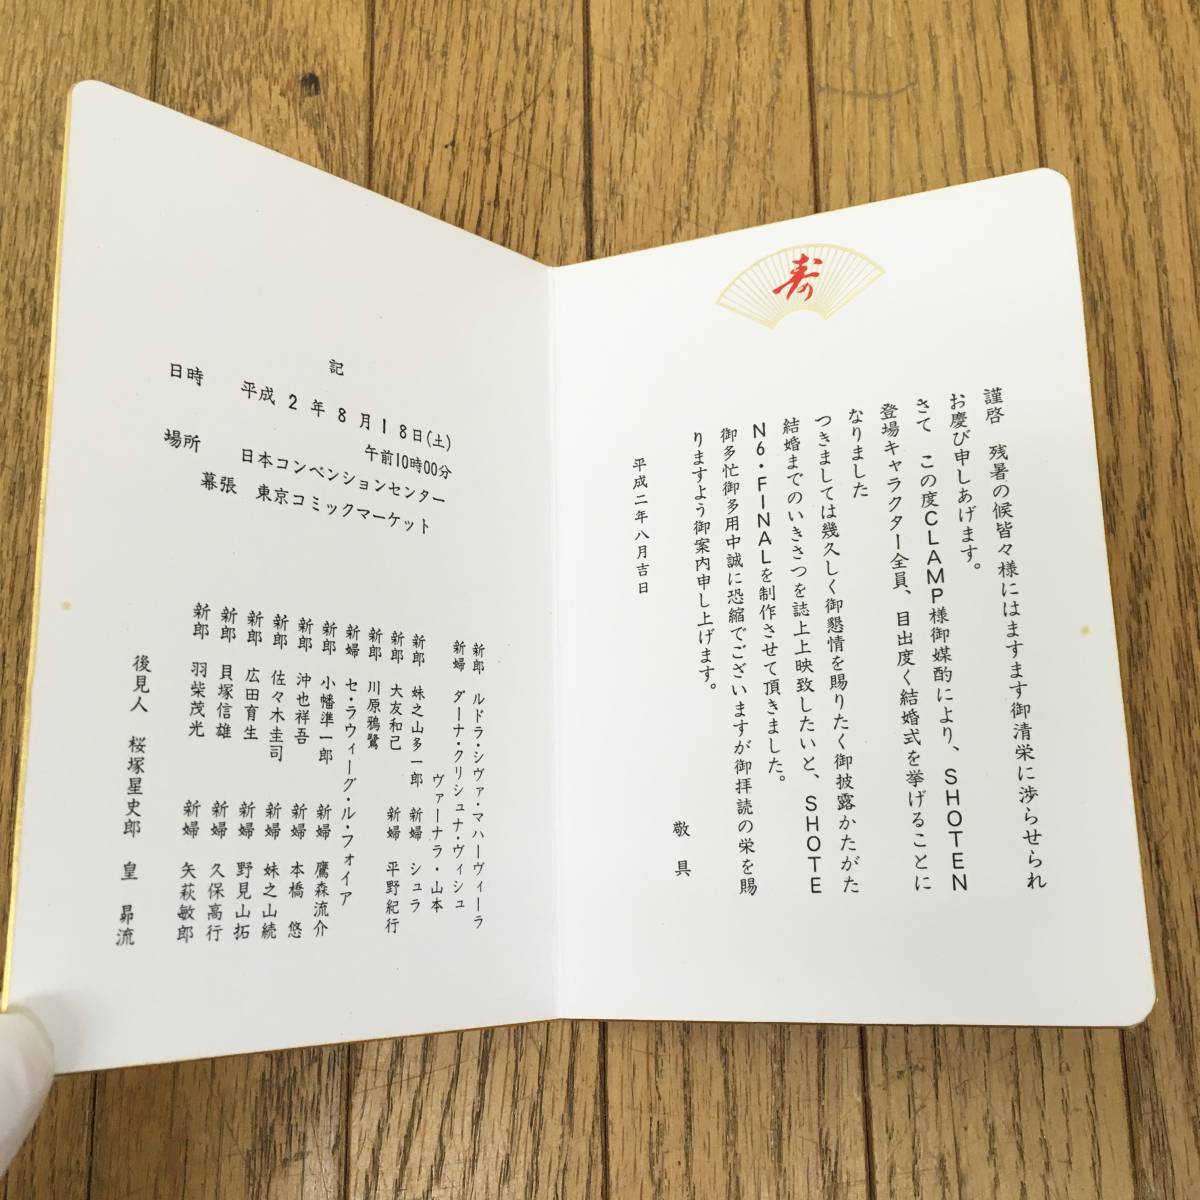 寿
謹啓 残暑の候皆々様にはますます御清栄に渉らせられ
お慶び申しあげます。
さて この度CLAMP様御媒酌により、SHOTEN
登場キャラクター全員、目出度く結婚式を挙げることに
なりました
つきましては幾久しく御懇情を賜りたく御披露かたがた
結婚までのいきさつを誌上上映致したいと、SHOTE
N6・FINALを制作させて頂きました。
御多忙御多用中誠に恐縮でございますが御拝読の栄を賜
りますよう御案内申し上げます。
敬具
平成二年八月吉日
記
日時 平成2年8月18日(土)
午前10時00分
場所 日本コンベンションセンター
幕張 東京コミックマーケット
新郎 ルドラ・シヴァ・マハーヴィーラ
新婦 ダーナ・クリシュナ・ヴィシュ
ヴァーナラ・山本
新郎 妹之山多一郎 新婦 シュラ
新郎 大友和己 新婦 平野紀行
新郎 川原鴉鷺
新婦 セ・ラウィーグ・ル・フォイア
新郎 小幡準一郎 新婦 鷹森流介
新郎 沖也祥吾 新婦 本橋 悠
新郎 佐々木圭司 新婦 妹之山続
新郎 広田育生 新婦 野見山拓
新郎 貝塚信雄 新婦 久保高行
新郎 羽柴茂光 新婦 矢萩敏郎
後見人 桜塚星史郎 皇 昴流